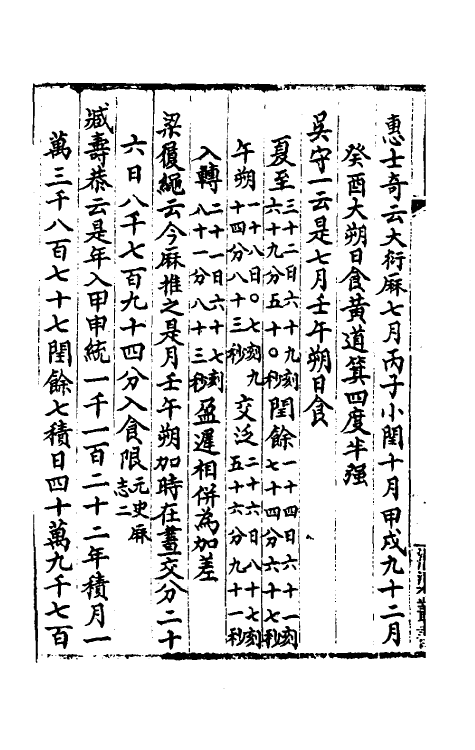 惠士奇云大衍厤七月丙子小閏十月甲戌九十二月
癸酉大朔日食黄道箕四度半强
吳守一云是七月壬午朔日食
夏至三十二日六十九刻六十九分五十〇秒閏餘一十四日六十一刻七十四分六十七秒
午朔一十八日〇七刻九十四分八十三秒交泛二十六日八十七刻五十六分九十一秒
入轉二十一日六十七刻八十一分八十三秒盈遲相併為加差
梁履繩云今厤推之是月壬午朔加時在晝交分二十
六日八千七百九十四分入食限元史厤志二
臧壽恭云是年入甲申統一千一百二十二年積月一
萬三千八百七十七閏餘七積日四十萬九千七百